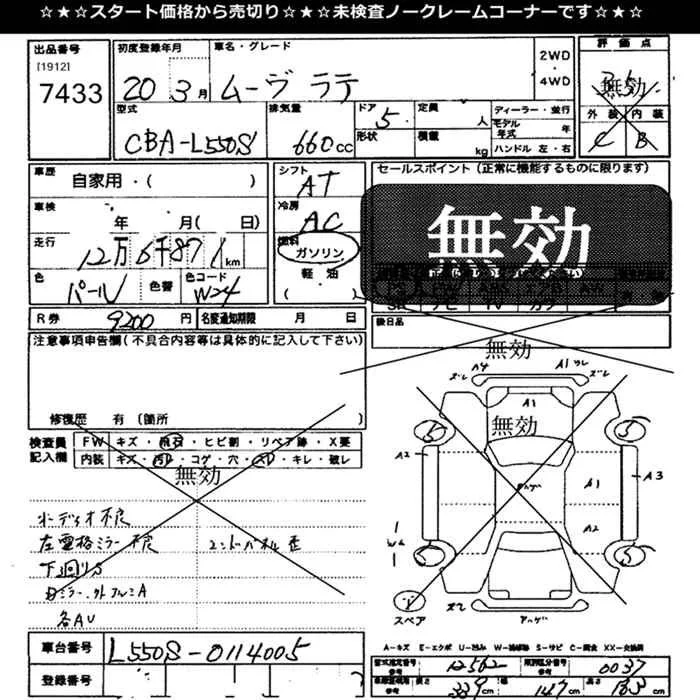 ☆★☆スタート価格から売切り☆★☆未検査ノークレームコーナーです☆★☆
出品番号 初度登録年月 車名・グレード 2WD 評価点
[1912]
7433 20 3月 ムーヴ ラテ 4WD 無効
型式 排気量 ドア 定員 ディーラー・並行 外装 内装
CBA-L550S 660cc 5 人 モデル年式 年 C B
形状 積載 kg ハンドル 左・右
車歴 自家用・( ) シフト AT セールスポイント (正常に機能するものに限ります)
車検 年 月( 日) 冷房 AC 無効
走行 12万6千871km 燃料 ガソリン
色 パール 色替 色コード W24 軽油
( )
R券 9200円 名変通知期限 月 日 後日品
注意事項申告欄(不具合内容等は具体的に記入して下さい) 無効
修復歴 有 (箇所 )
検査員記入欄 FW キズ・飛石・ヒビ割・リペア跡・X要
内装 キズ・汚レ・コゲ・穴・スレ・キレ・破レ
無効
オーディオ不良
左電格ミラー不良 エンドパネル歪
下回りS
各AU
ズレ A4 A1 ワレ ズレ
A1
無効
5 5
A2 A1 A3
A2
5 5
スペア
A-キズ E-エクボ U-凹み W-補修跡 S-サビ C-腐食 XX-交換済
車台番号 L550S-0114005
登録番号
型式指定番号 参考 12562 類別区分番号 参考 0037
長さ 339cm 幅 147cm 高さ 163cm